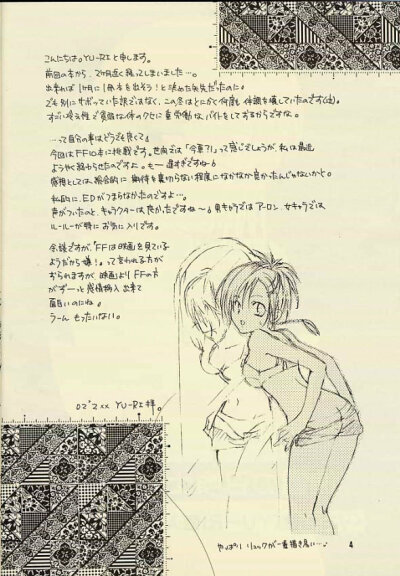 こんにちは。YU-RIと申します。
前回の本から、2ヶ月近く経ってしまいました…。
出来れば1ヶ月に1冊本を出そう!と決めた矢先だったのに
でも別にサボっていた訳ではなく、この冬はとにかく何度も体調を壊していたのです(泣)
すごい冷え性で貧弱な体のクセに重労働なバイトをしてるからですな。
…って自分の事はどうでも良くて
今回はFF10本に挑戦です。世間では「今更?!」って感じでしょうが、私は最近
ようやく終わらせたのですよ。も〜遅すぎですね
感想としては、総合的に期待を裏切らない程度になかなか良かったんじゃないかと。
私的に、EDがつまらなかったのですよ…。
声がついたのと、キャラクターは良かったですね〜 男キャラではアーロン、女キャラでは
ルールーが特にお気に入りです。
余談ですが、「FFは映画を見ている
ようだから嫌!」って言われる方が
おられますが、映画よりFFの方が
ずーっと感情移入出来て
面白いのにね。
うーん もったいない。
02' 2 xx YU-RI拝。
やっぱり リュックが一番描き易い…
4